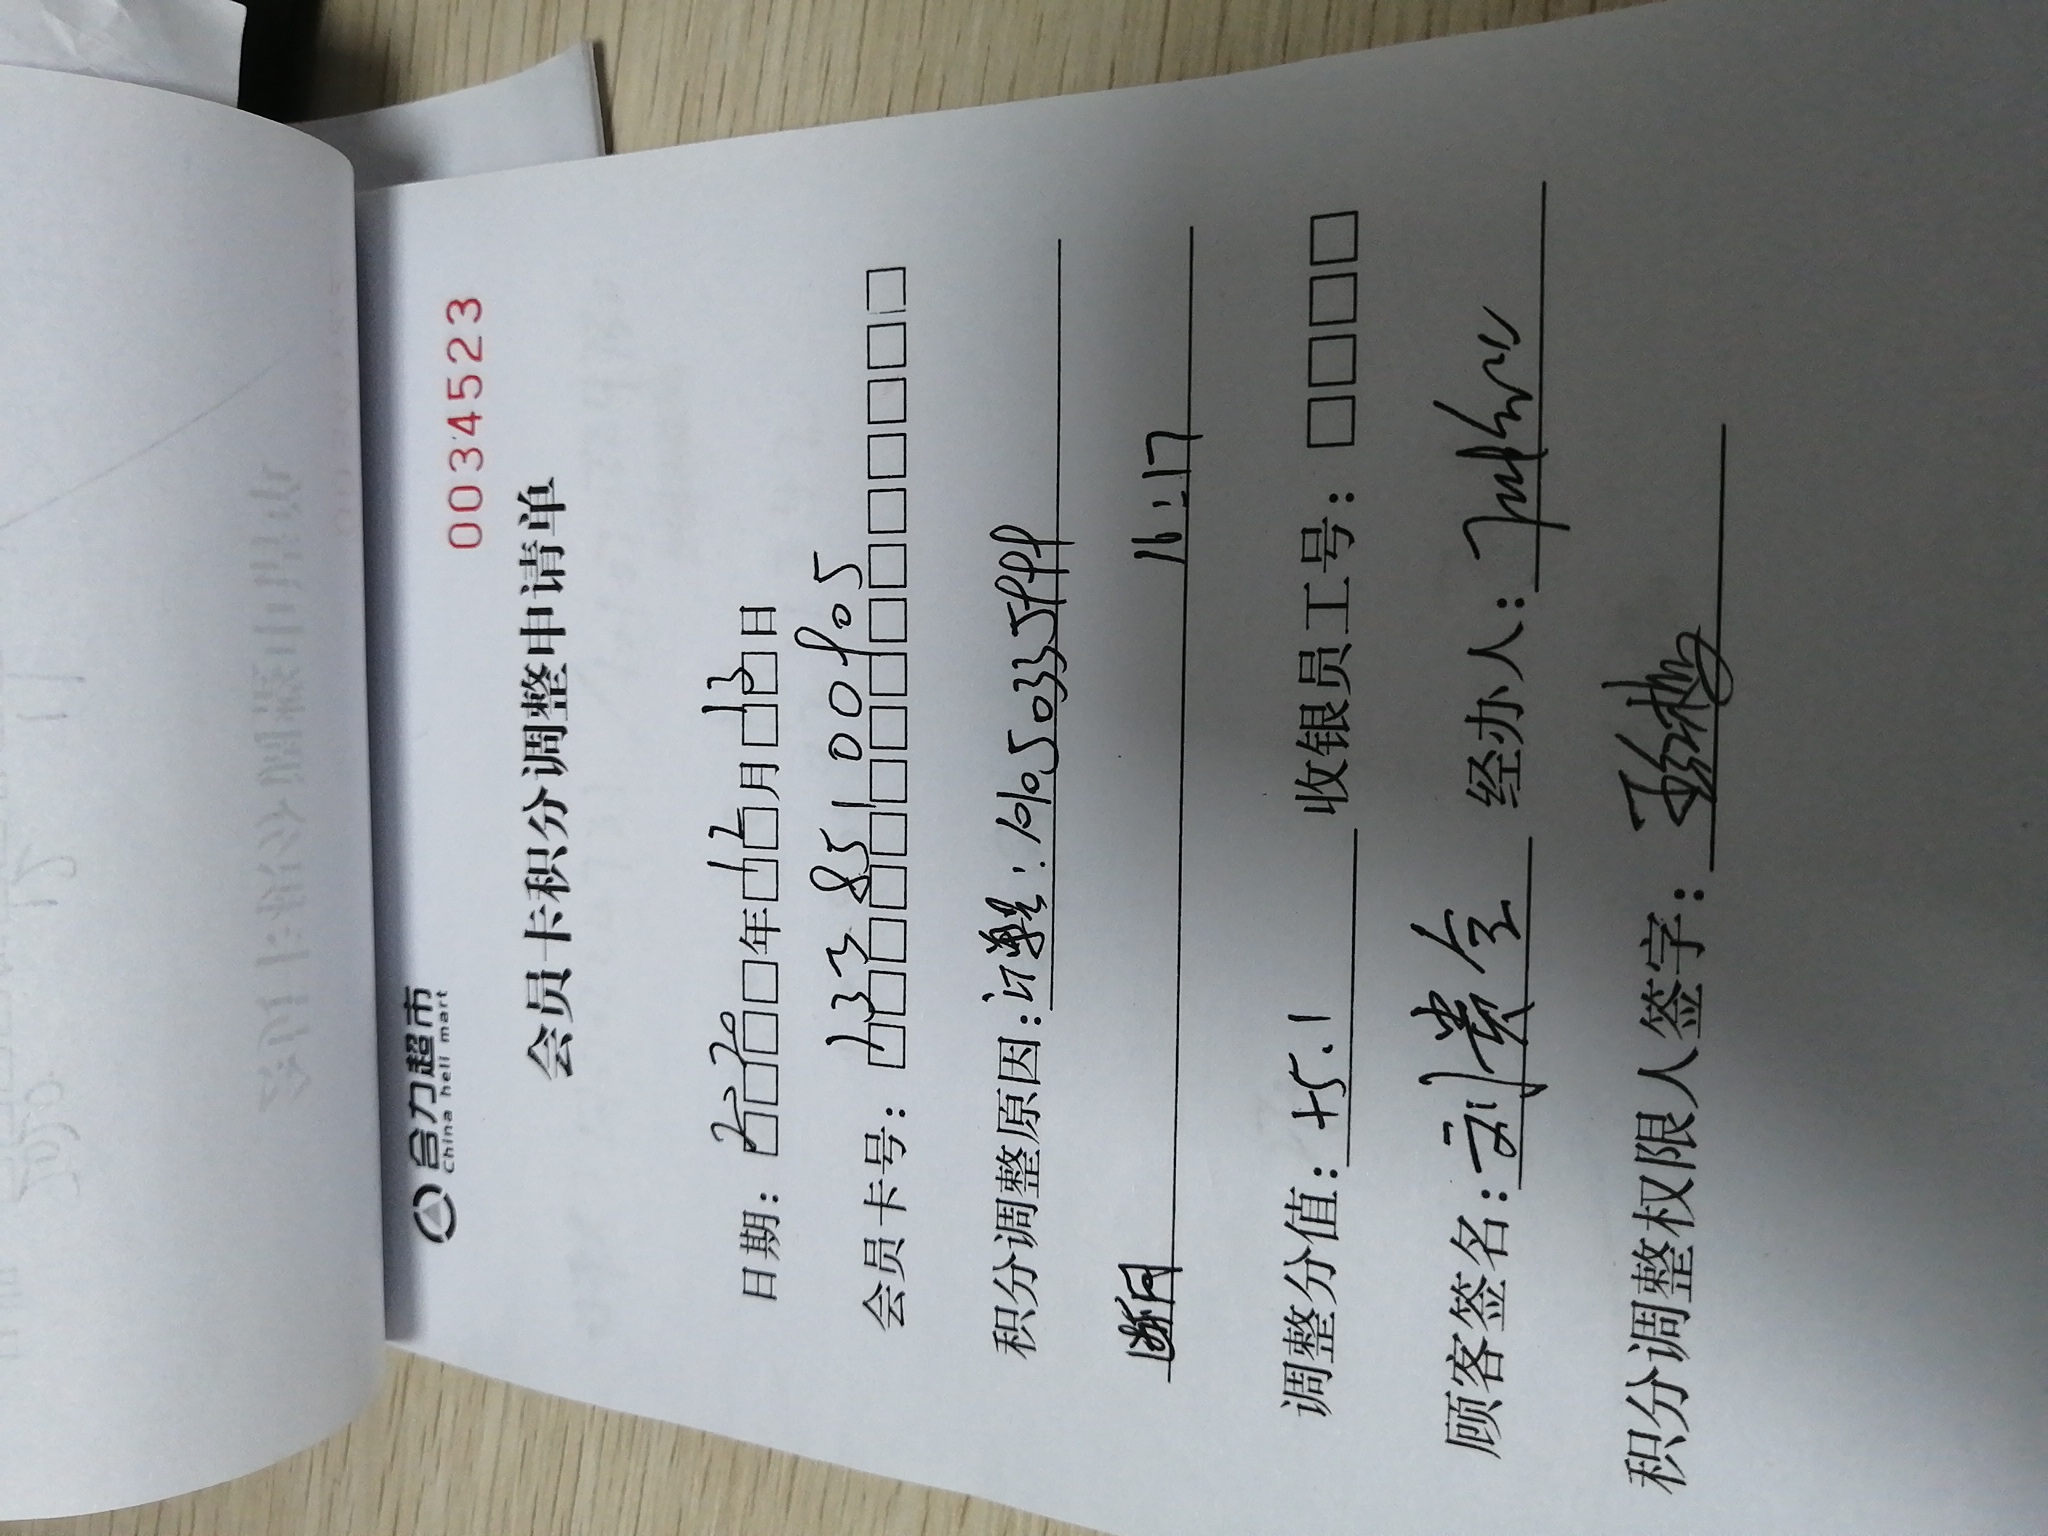 合力超市
China heli mart
0034523
会员卡积分调整申请单
日期：2020年12月13日
会员卡号：13385100805
积分调整原因：订单：
断网 16:17
调整分值：+5.1 收银员工号：
顾客签名：刘贵全 经办人：
积分调整权限人签字：